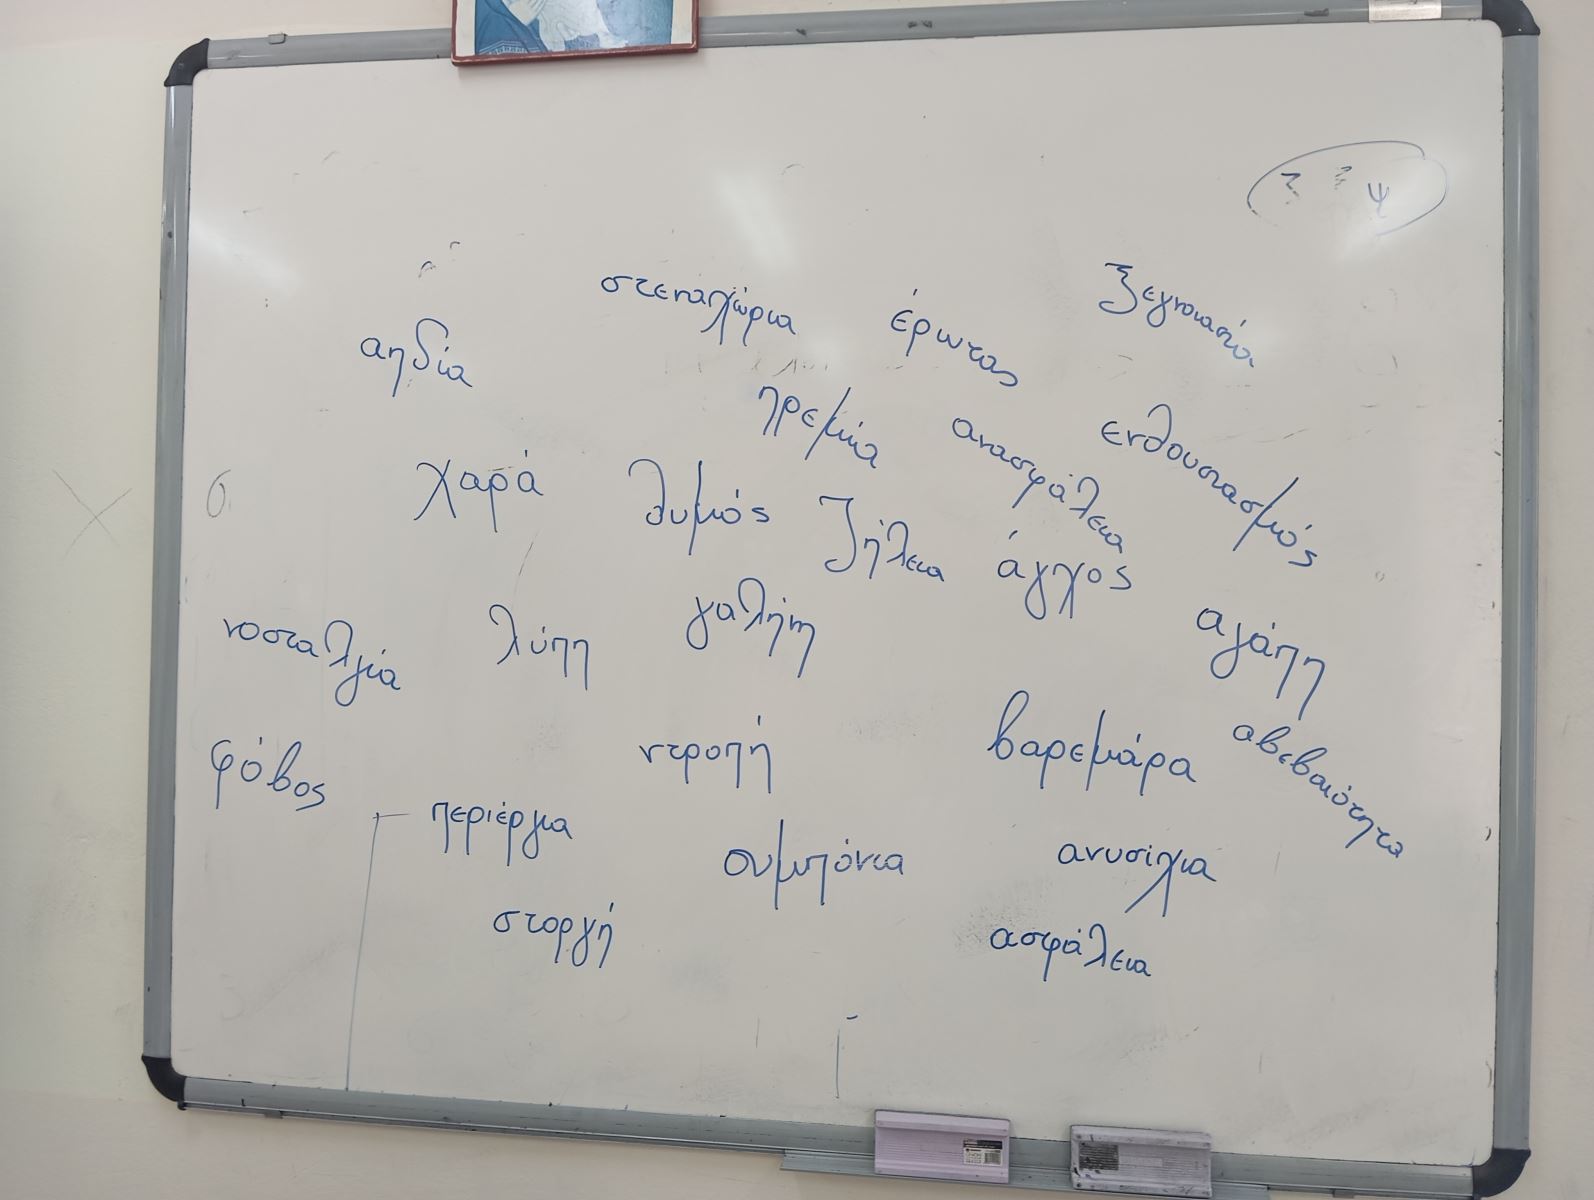 ψ
στεναχώρια
έρωτας
ξεγνοιασιά
αηδία
ηρεμία
ανασφάλεια
ενθουσιασμός
χαρά
θυμός
ζήλεια
άγχος
νοσταλγία
λύπη
γαλήνη
αγάπη
φόβος
ντροπή
βαρεμάρα
αβεβαιότητα
περιέργια
συμπόνια
ανυσιχια
στοργή
ασφάλεια